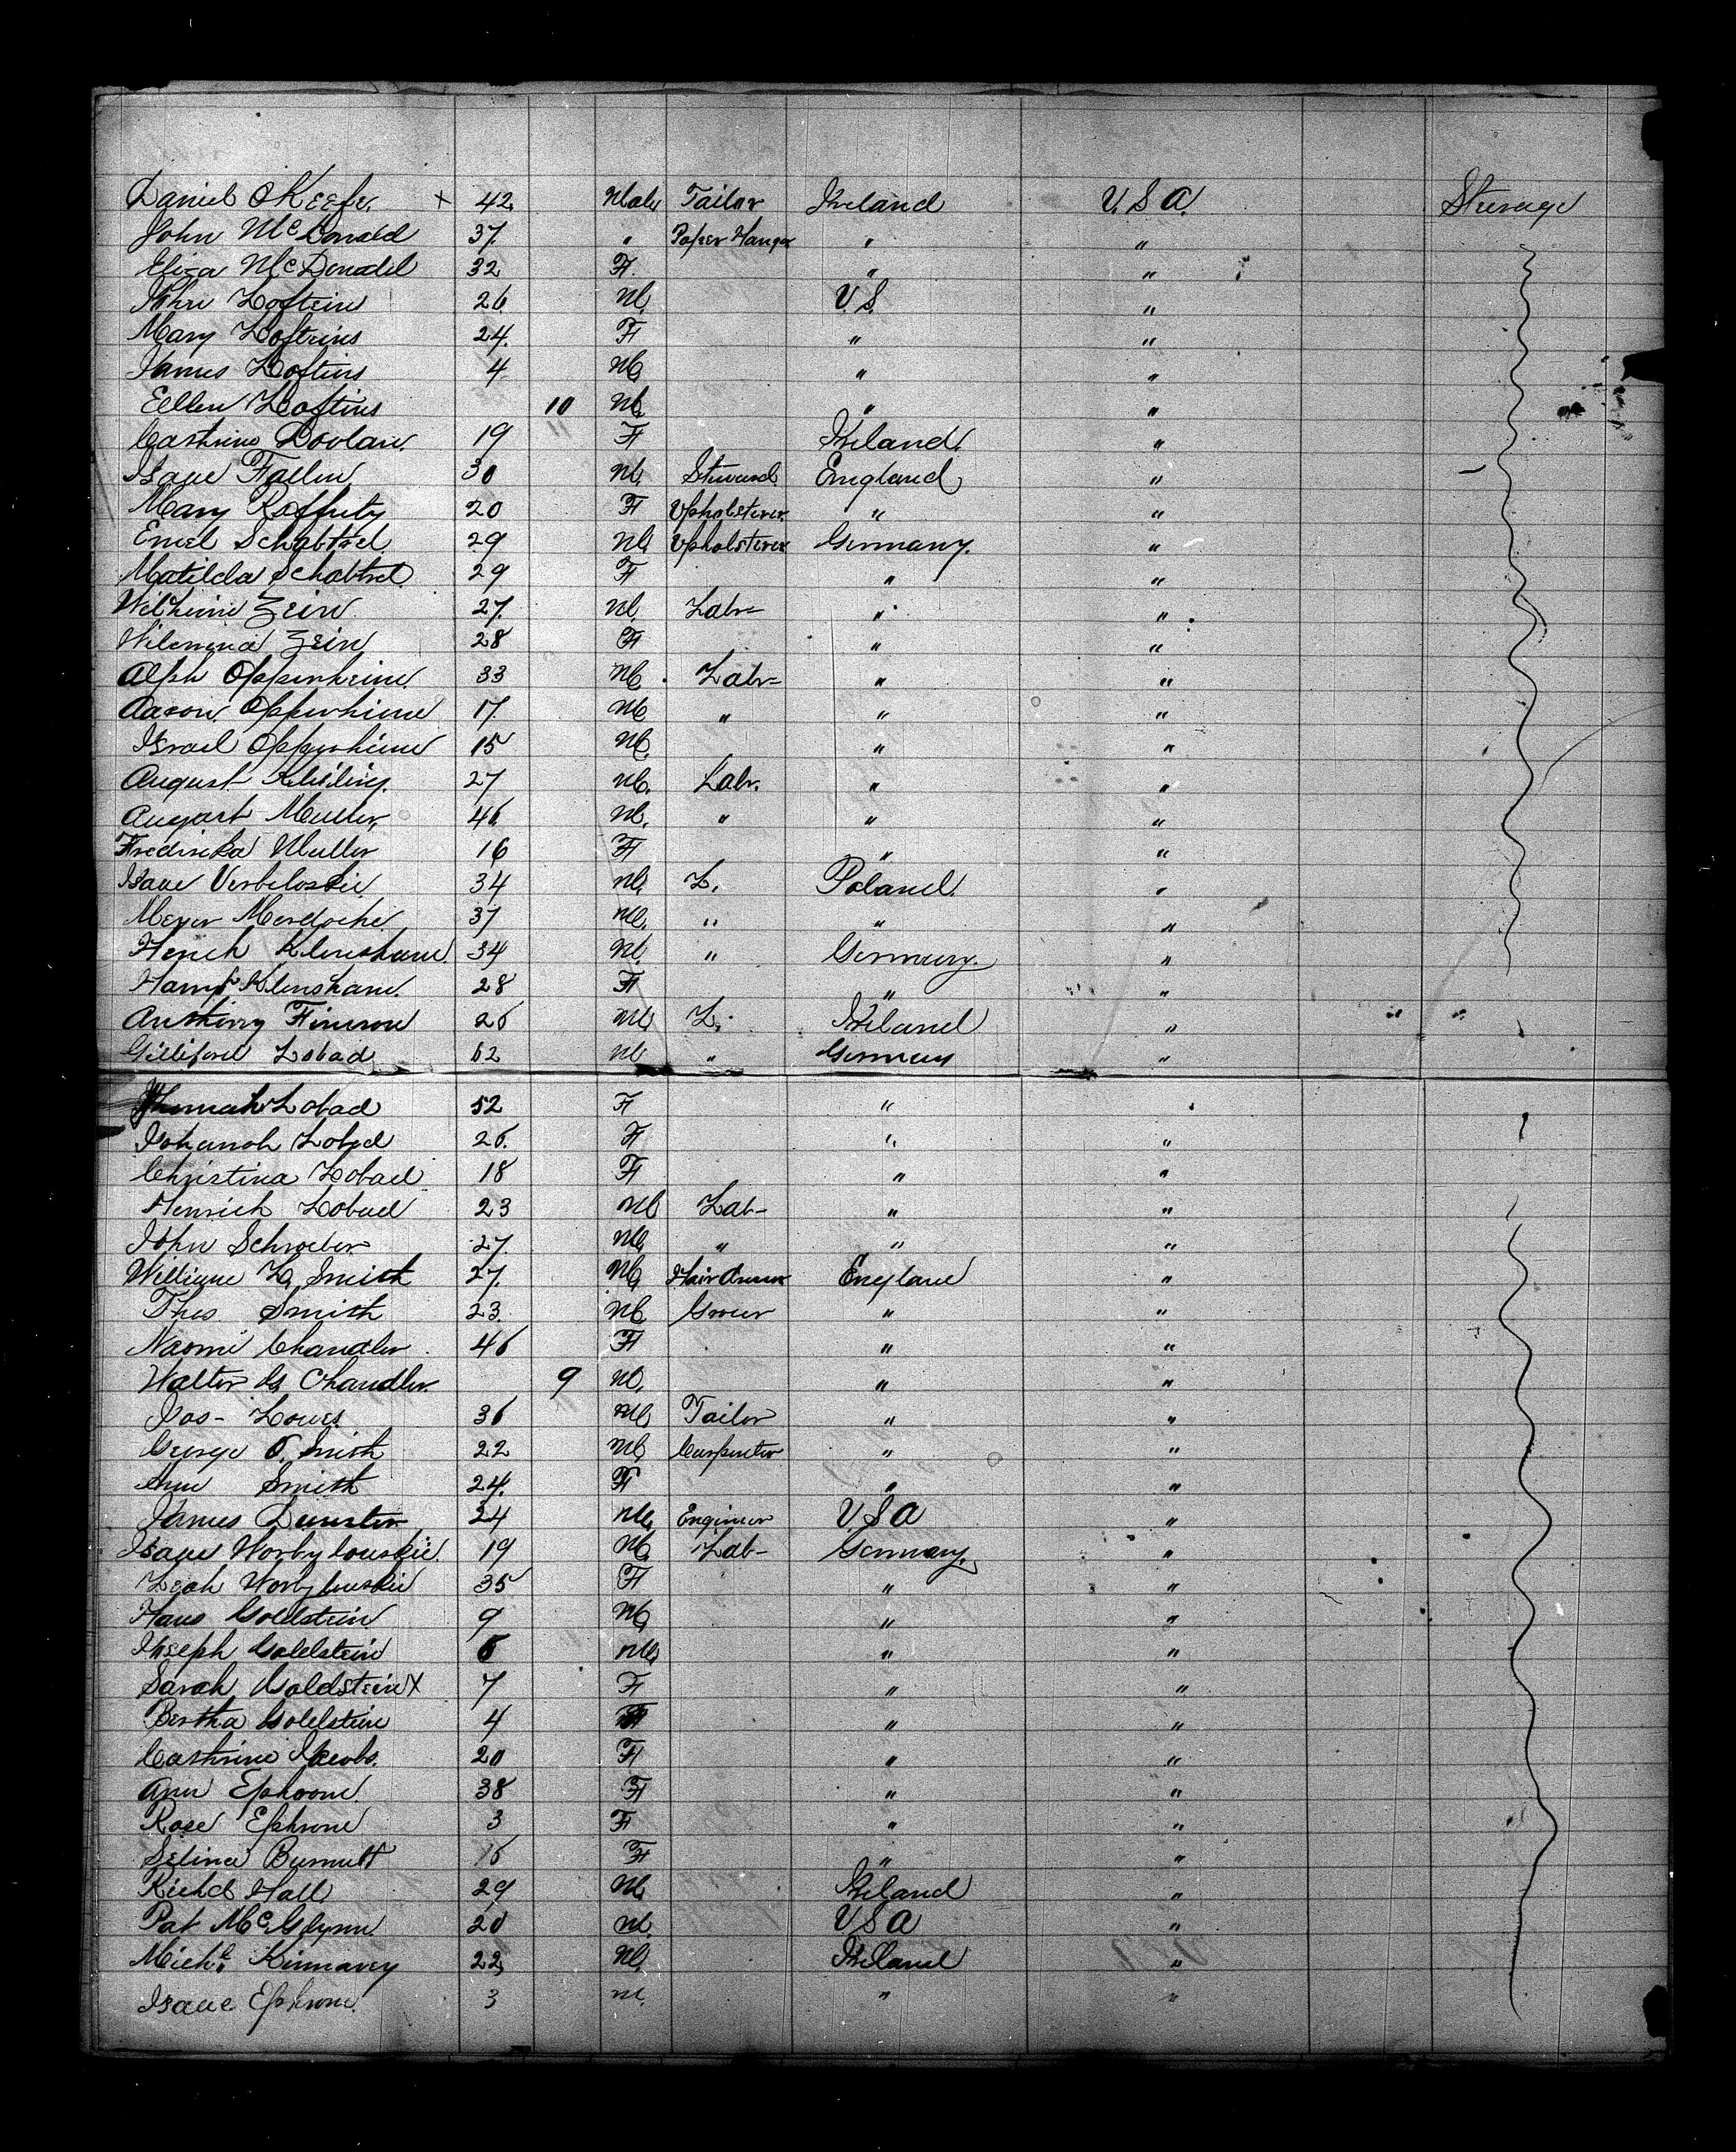 Daniel O Keefe. x 42. Male Tailor Ireland U.S.A. Steerage
John McDonald 37. " Paper Hanger " "
Eliza McDonald 32 F. " "
John Loftein 26. M. U.S. "
Mary Loftins 24. F " "
James Loftins 4 M " "
Ellen Loftins 10 M. " "
Cathrine Doolan. 19 F Ireland. "
Isaac Fallen 30 M. Steward. England "
Mary Rafferty 20 F Upholsterer " "
Emiel Schabtsel. 29 M. Upholsterer Germany. "
Matilda Schabtsel. 29 F " "
Wilhelm Zein 27. M. Labr= " "
Wilemina Zein 28 F " "
Alph Oppenheime. 33 M. Labr= " "
Aaron Oppenhime 17. M " " "
Israel Oppenhime 15 M. " "
August Kleiling. 27 M. Labr. " "
August Muller 46. M. " " "
Fredirika Muller 16 F " "
Isaac Verbeloskie 34 M. L. Poland. "
Meyer Merdoche. 37 M. " " "
Henich Klenshane. 34 M. " Germany. "
Klenshane. 28 F " "
Anthony Finerow 26 M. L. Ireland "
Gilliford Lobad 62 M " Germany "
Lobad 52 F "
Johanah Lobad 26. F " "
Christina Lobad 18 F " "
Henrich Lobad 23 M Lab- " "
John Schroeder 27. M. " " "
William H. Smith 27. M. Hair Dresser England "
Thos. Smith 23. M Grocer " "
Naomi Chandler 46 F " "
Walter G. Chandler. 9 M. " "
Jos- Lowes. 36 M. Tailor " "
George O. Smith 22 M. Carpenter " "
Ann Smith 24. F " "
James Dunster 24 M. Engineer U.S.A "
Isaac Worbylouskie. 19 M. Lab- Germany. "
Leah Worbylouskie 35 F " "
Hans Goldstein 9 M. " "
Joseph Goldstein 6 M. " "
Sarah Goldstein x 7 F " "
Bertha Goldstein 4 F " "
Cathrine Jacobs. 20 F " "
Ann Ephrone. 38 F " "
Rose Ephrone 3 F " "
Selina Burnutt 16 F " "
Richd Hall 29 M. Ireland "
Pat McGlynn 20 M. U.S.A "
Michl. Kinnavey 22 M. Ireland "
Isaac Ephrone. 3 M. " "